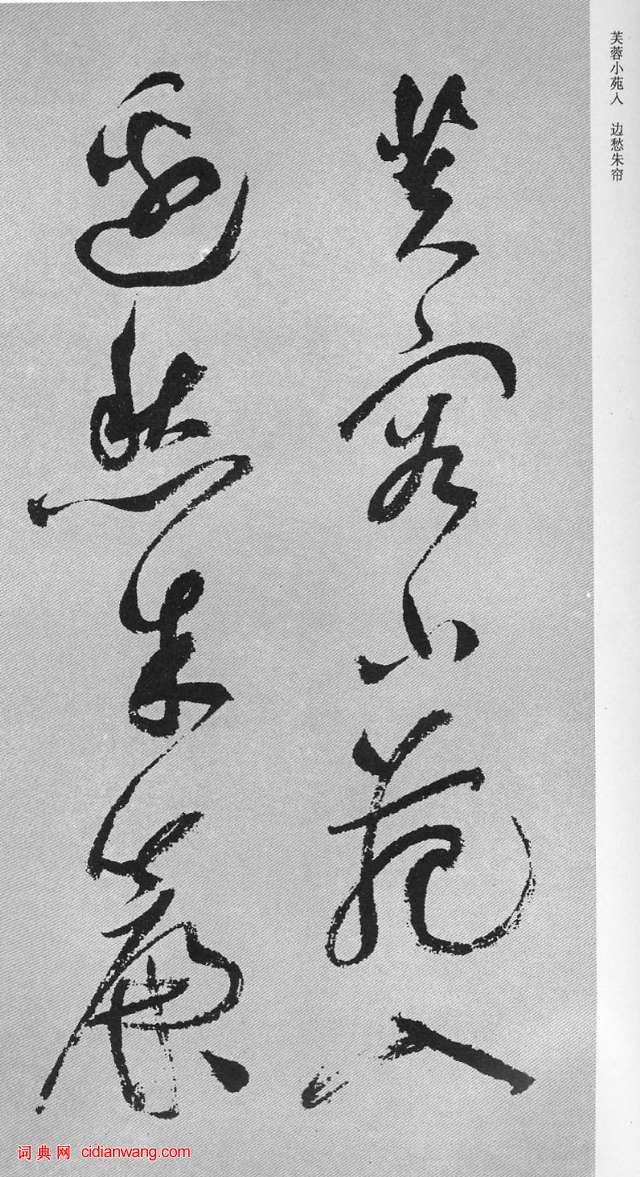 芙蓉小苑入 边愁朱帘
芙蓉小苑入
邊愁朱簾
词典网 cidianwang.com